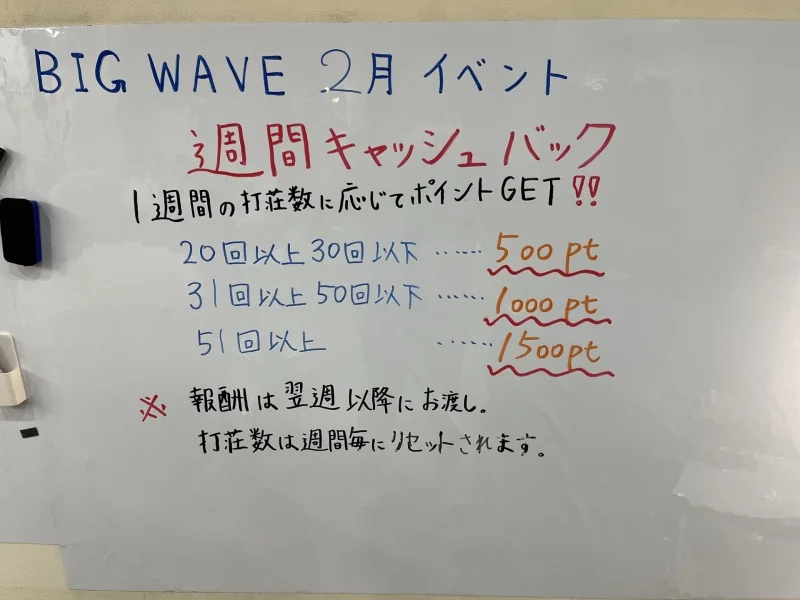 BIG WAVE 2月 イベント
週間キャッシュバック
1週間の打荘数に応じてポイントGET!!
20回以上30回以下 ‥‥‥ 500pt
31回以上50回以下 ‥‥‥ 1000pt
51回以上 ‥‥‥ 1500pt
※ 報酬は翌週以降にお渡し。
打荘数は週間毎にリセットされます。